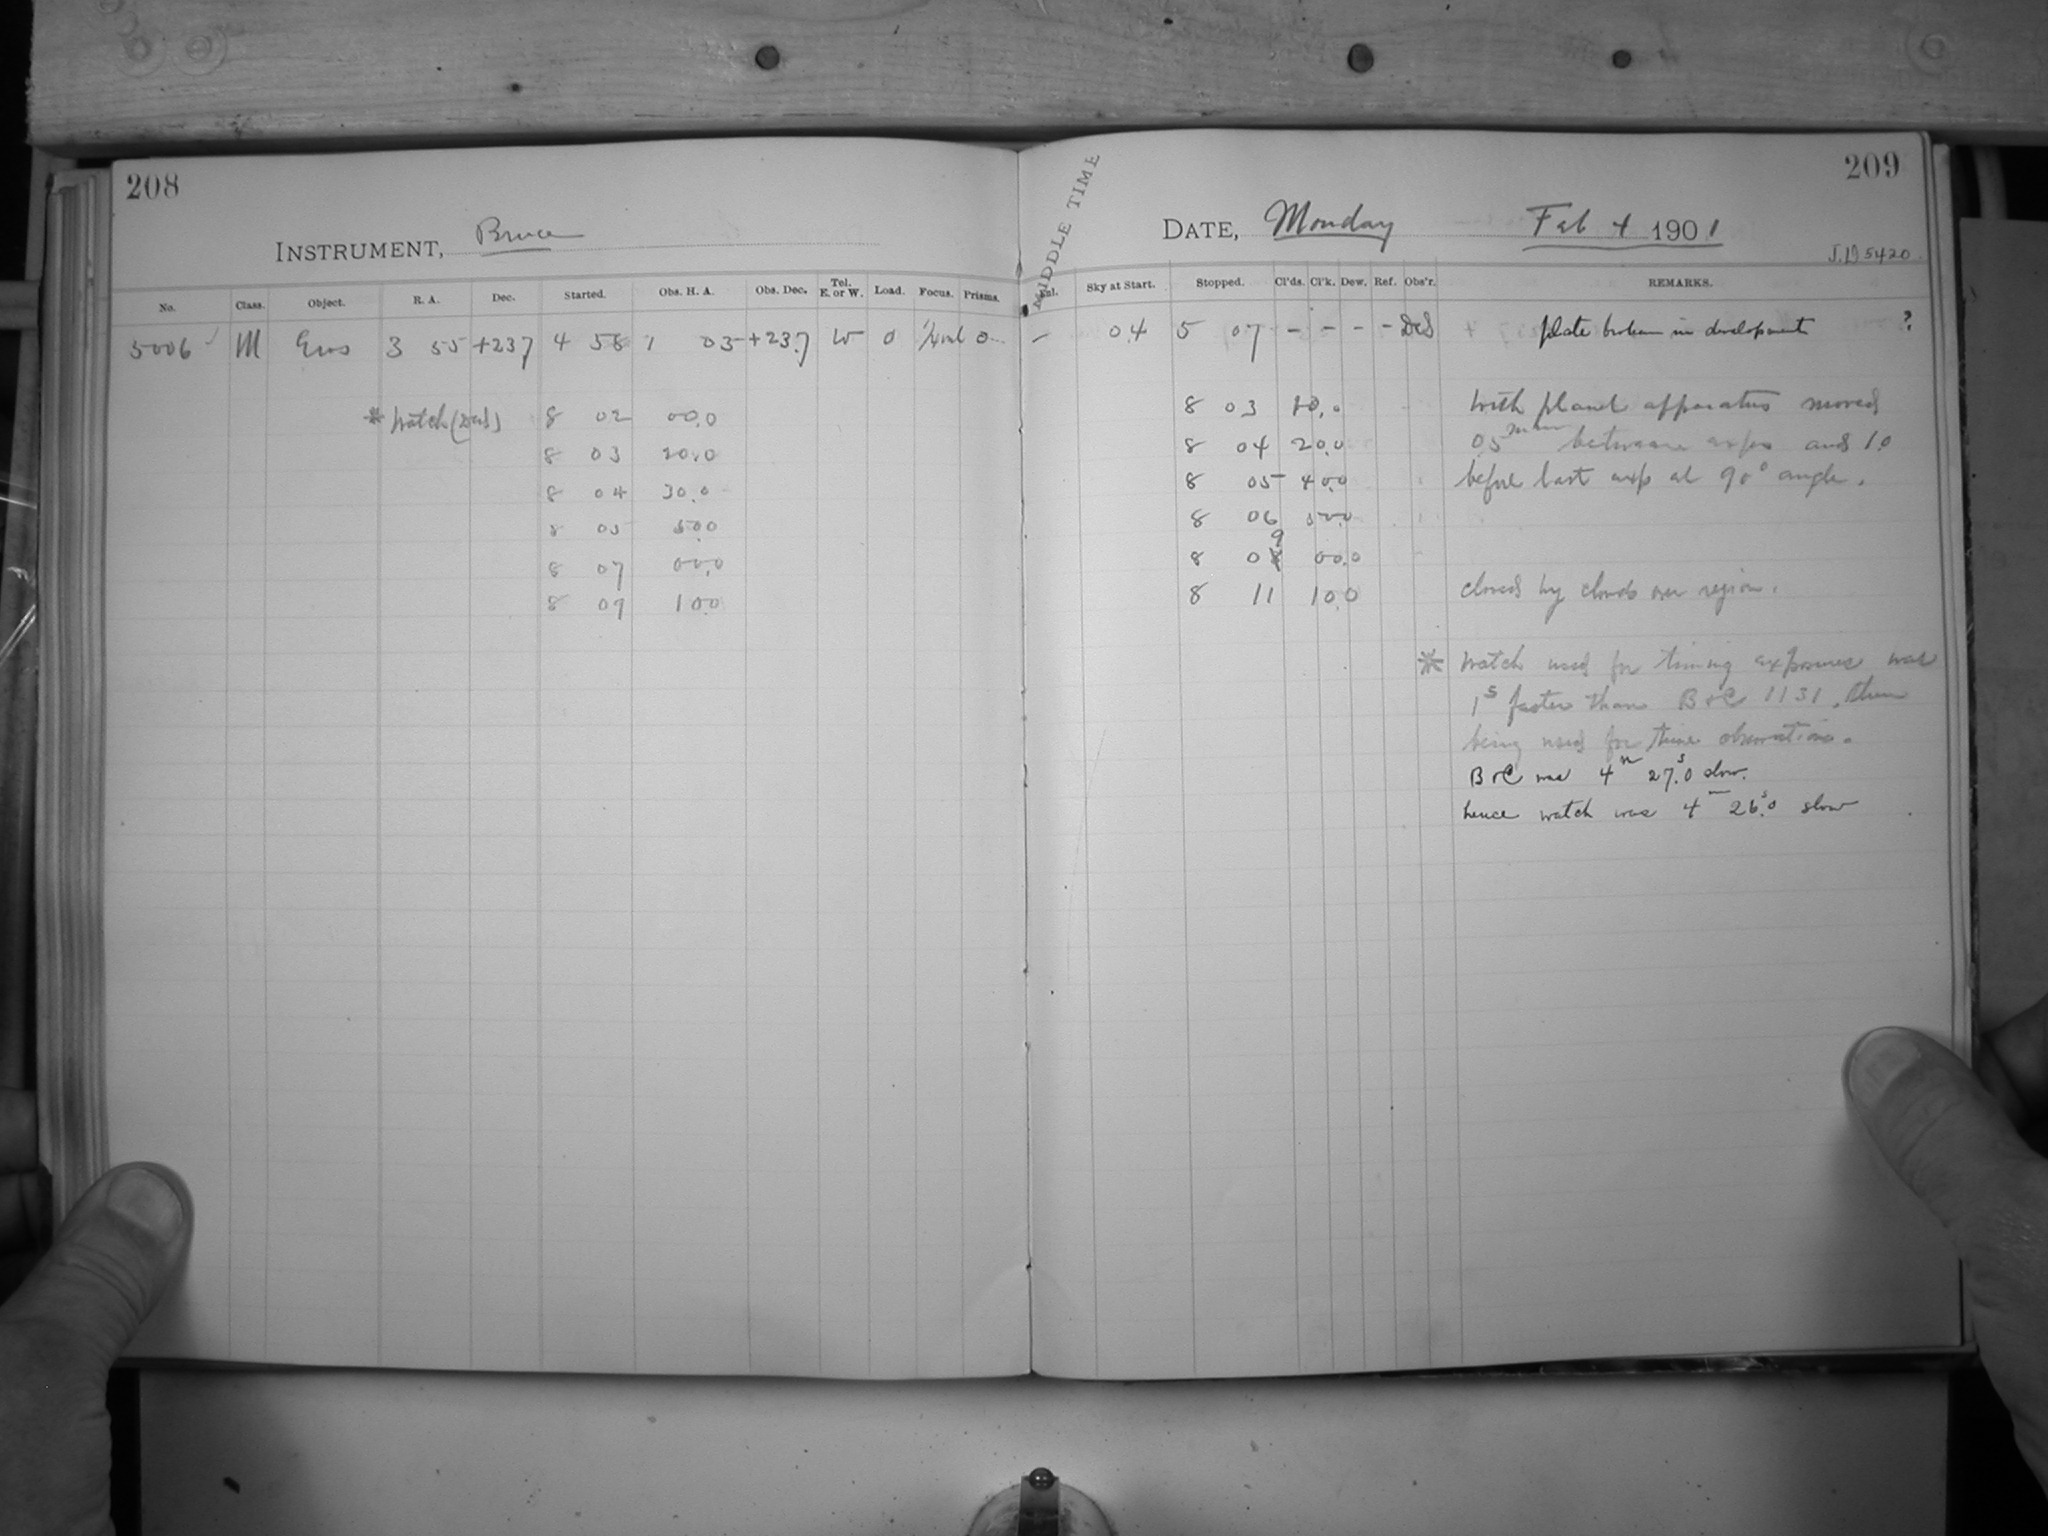 208
INSTRUMENT, Bruce
No. Class. Object. R. A. Dec. Started. Obs. H. A. Obs. Dec. Tel. E. or W. Load. Focus. Prisms.
5006 M Eros 3 55 +237 4 58 1 03 +23.7 W 0 0
* Watch 8 02 00.0
8 03 20.0
8 04 30.0
8 05 50.0
8 07 00.0
8 09 10.0
MIDDLE TIME
209
DATE, Monday Feb 4 1901
J.D 5420
Sky at Start. Stopped. Cl'ds. Cl'k. Dew. Ref. Obs'r. REMARKS.
- 04 5 07 - - - - plate broken in development ?
8 03 10.0 With planet apparatus moved
8 04 20.0 0.5 mm between exps and 1.0
8 05 40.0 before last exp at 90° angle.
8 06 50.0
8 09 00.0
8 11 10.0 closed by clouds over region.
* Watch used for timing exposures was
1s faster than B+C 1131, then
being used for time observations.
B+C was 4m 27s.0 slow.
hence watch was 4m 26s.0 slow